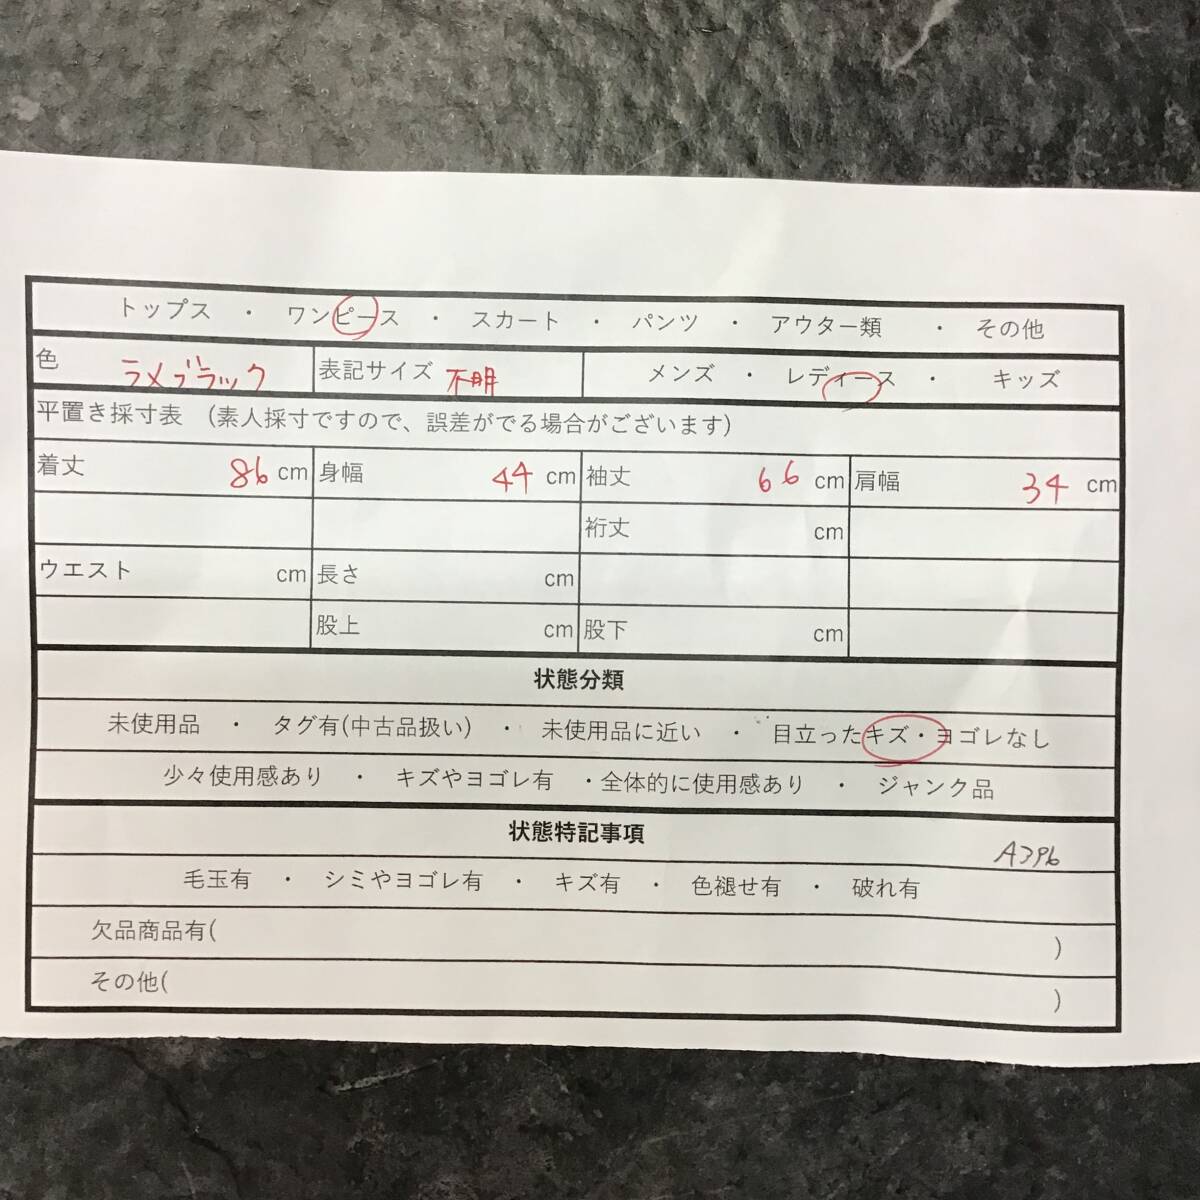 トップス ・ ワンピース ・ スカート ・ パンツ ・ アウター類 ・ その他
色 ラメブラック 表記サイズ 不明 メンズ ・ レディース ・ キッズ
平置き採寸表 (素人採寸ですので、誤差がでる場合がございます)
着丈 86 cm 身幅 44 cm 袖丈 66 cm 肩幅 34 cm
裄丈 cm
ウエスト cm 長さ cm
股上 cm 股下 cm
状態分類
未使用品 ・ タグ有(中古品扱い) ・ 未使用品に近い ・ 目立ったキズ・ヨゴレなし
少々使用感あり ・ キズやヨゴレ有 ・全体的に使用感あり ・ ジャンク品
状態特記事項
A396
毛玉有 ・ シミやヨゴレ有 ・ キズ有 ・ 色褪せ有 ・ 破れ有
欠品商品有( )
その他( )